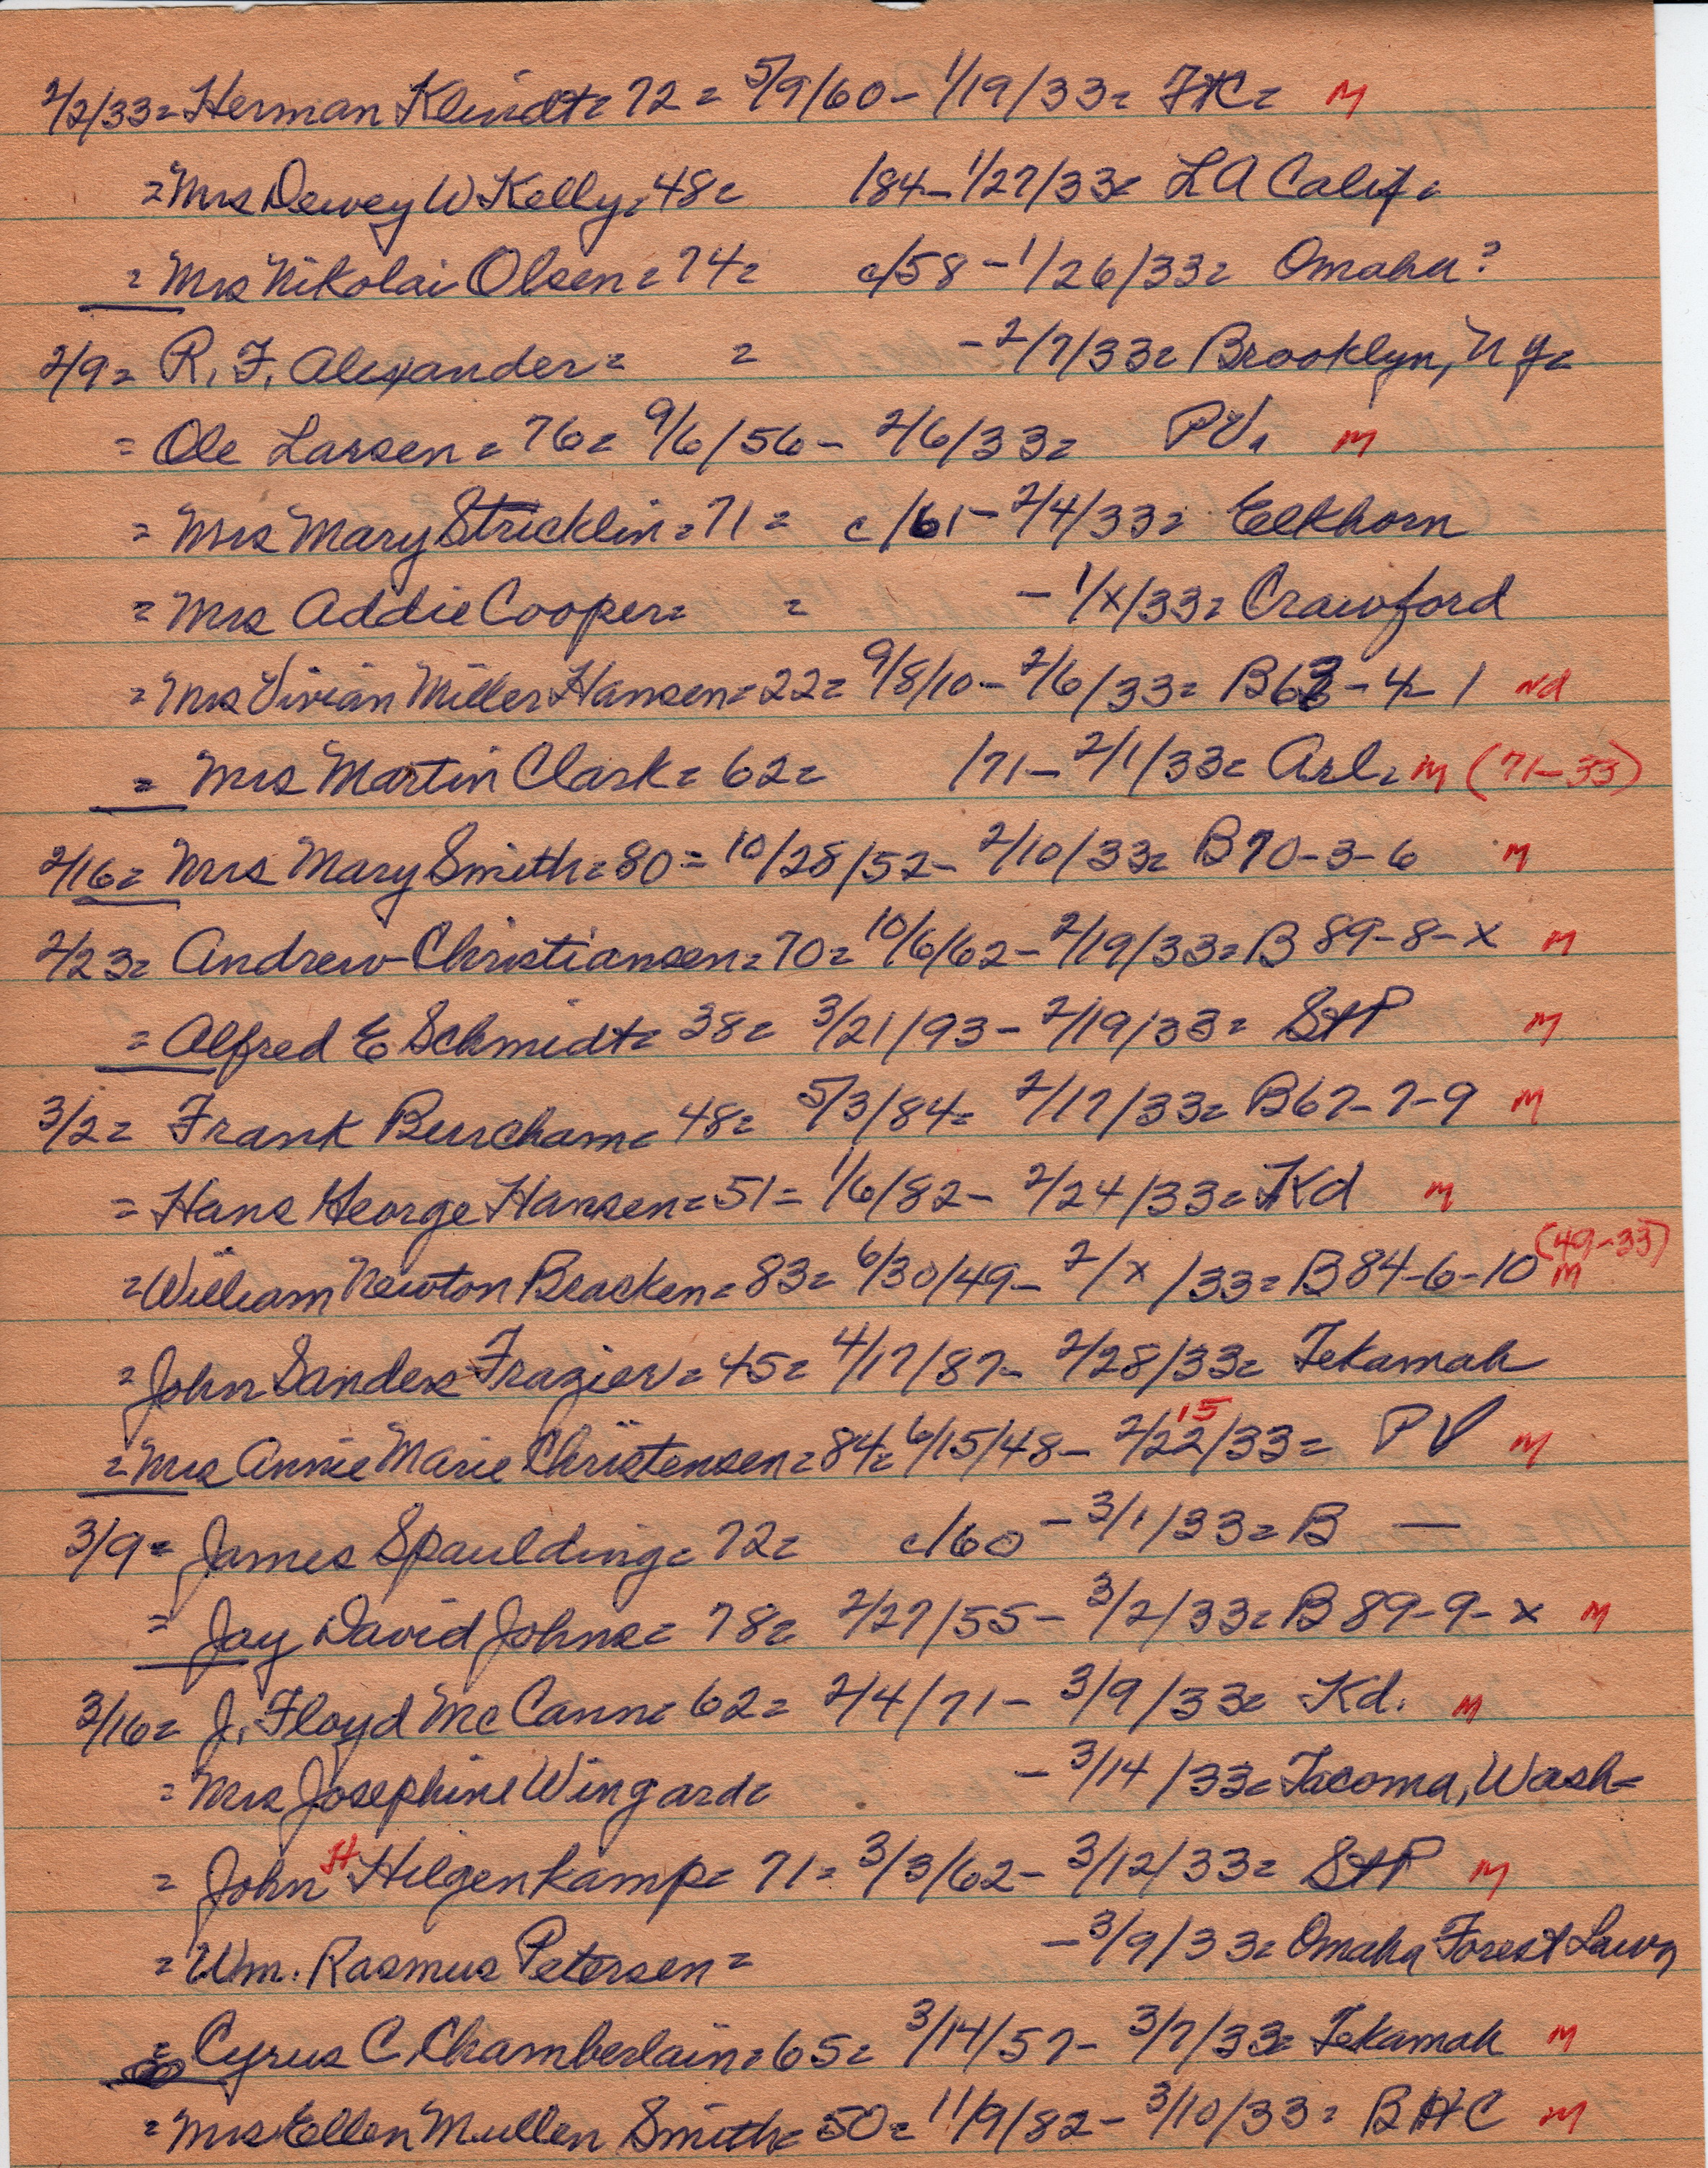 2/2/33= Herman Klindt= 72= 5/9/60- 1/19/33= FHC= M
=Mrs Dewey W Kelly= 48= /84- 1/27/33= LA Calif=
= Mrs Nikolai Olsen= 74= c/58 - 1/26/33= Omaha?
2/9= R. F. Alexander= = -2/7/33= Brooklyn, N Y=
= Ole Larsen= 76= 9/6/56- 2/6/33= PV. M
= Mrs Mary Stricklin= 71= c/61- 2/4/33= Eelkhorn
= Mrs Addie Cooper= = - 1/x/33= Crawford
= Mrs Vivian Miller Hansen= 22= 9/8/10- 2/6/33= B63-4-1 nd
= Mrs Martin Clark= 62= /71- 2/1/33= Arl= M (71-33)
2/16= Mrs Mary Smith= 80= 10/28/52- 2/10/33= B70-3-6 M
2/23= Andrew Christiansen= 70= 10/6/62- 2/19/33= B 89-8-x M
= Alfred E Schmidt= 38= 3/21/93- 2/19/33= StP M
3/2= Frank Burcham= 48= 5/3/84= 2/17/33= B67-7-9 M
= Hans George Hansen= 51= 1/6/82- 2/24/33= Kd M
=William Newton Bracken= 83= 6/30/49- 2/x/33= B84-6-10 M (49-33)
=John Sanders Frazier= 45= 4/17/87- 2/28/33= Tekamah
=Mrs Annie Marie Christensen= 84= 6/15/48- 2/22/33= 15 PV M
3/9= James Spaulding= 72= c/60 - 3/1/33= B —
= Jay David Johns= 78= 2/27/55- 3/2/33= B 89-9-x M
3/16= J. Floyd McCann= 62= 2/4/71- 3/9/33= Kd. M
= Mrs Josephine Wingard= - 3/14/33= Tacoma, Wash=
= John H Hilgenkamp= 71= 3/3/62- 3/12/33= StP M
= Wm. Rasmus Petersen= -3/9/33= Omaha Forest Lawn
= Cyrus C Chamberlain= 65= 3/14/57- 3/7/33= Tekamah M
= Mrs Ellen Mullen Smith= 50= 11/9/82- 3/10/33= BHC M